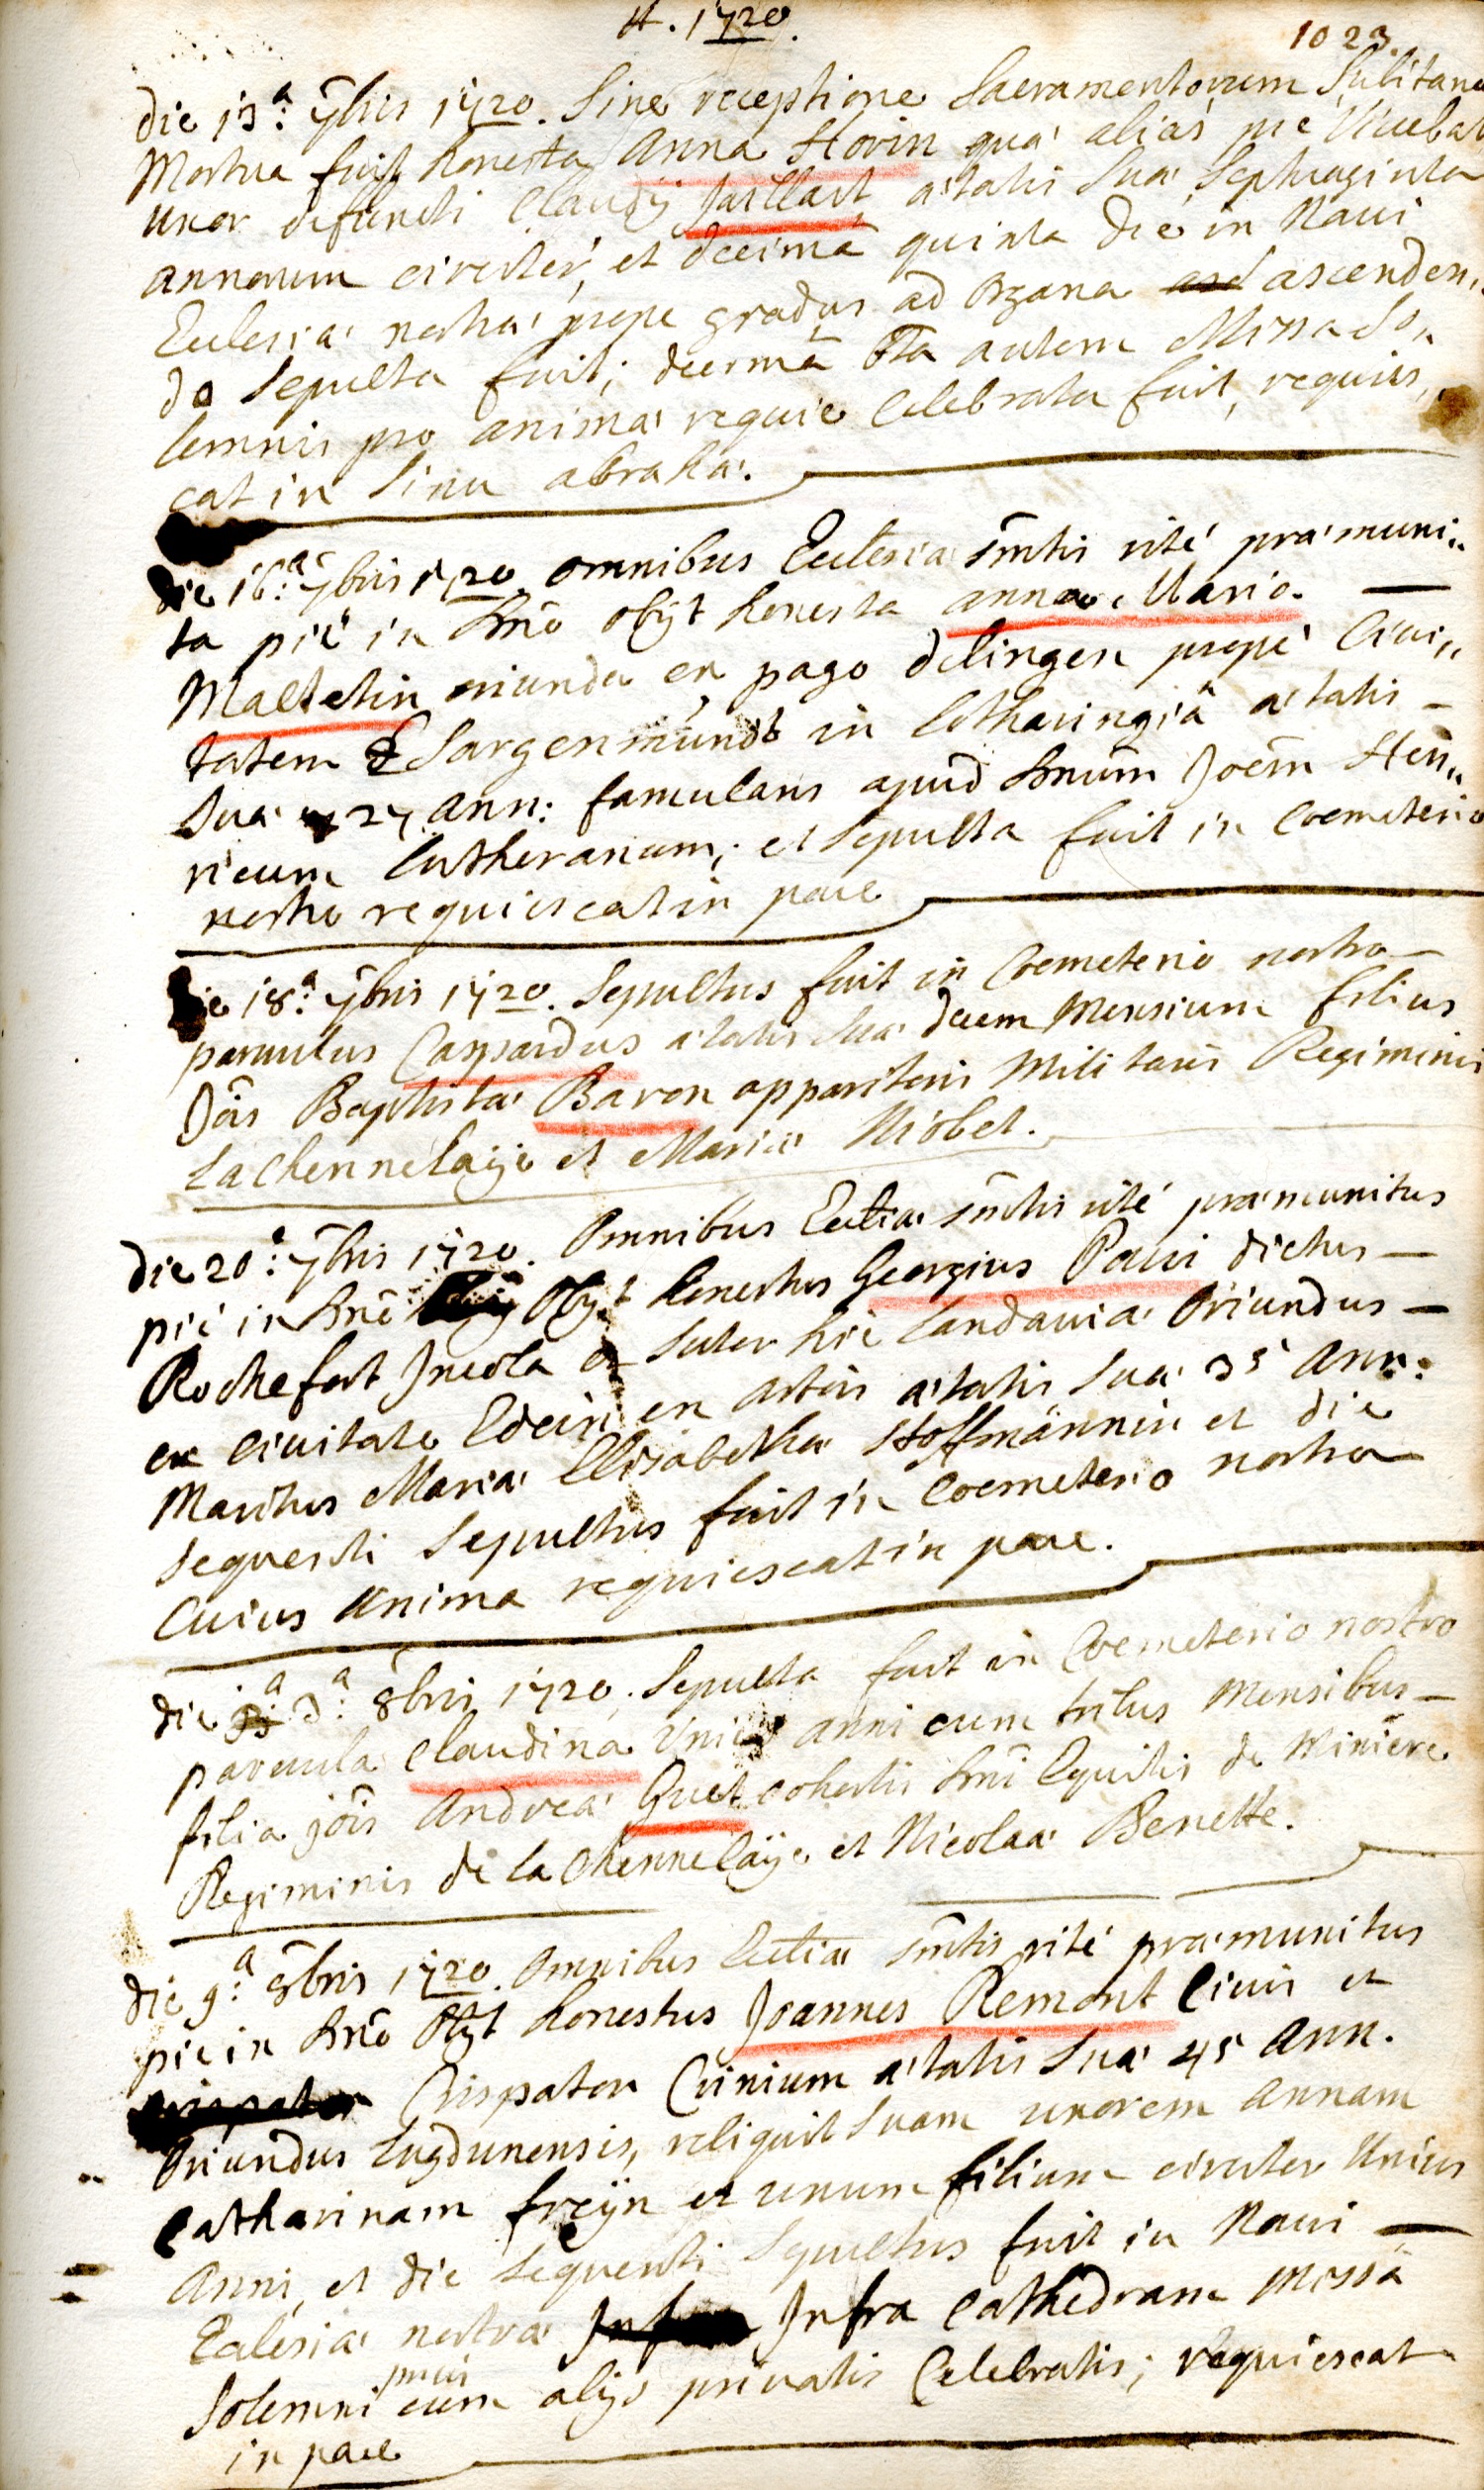 A. 1720.
1023.
die 13.ª 7bris 1720. Sine receptione Sacramentorum Subitane
Mortua fuit honesta Anna Horin quæ alias piè vivebat
uxor defuncti Claudij Jaillart ætatis suæ septuaginta
annorum circiter, et decimâ quinta die in Navi
Ecclesiæ nostræ prope gradus ad organa ascenden„
do sepulta fuit; decimâ 8ta autem Missa So„
lemnis pro animæ requie celebrata fuit, requies„
cat in Sinu abrahæ.
die 16.ª 7bris 1720 omnibus Ecclesiæ smtis ritè præmuni„
ta piè in Dno obijt honesta anna Maria
Maltetin oriunda ex pago delingen propè Civi„
tatem Sargenmündt in Lotharingiâ ætatis
suæ 27 ann: famulans apud Dnum Joem Hen„
ricum Lutheranum; et sepulta fuit in Coemeterio
nostro requiescat in pace
Die 18.ª 7bris 1720. Sepultus fuit in Coemeterio nostro
parvulus Caspardus ætatis suæ decem Mensium filius
Jois Baptistæ Baron apparitoris Militaris Regiminis
La Chennelaije et Mariæ Niobel.
die 20.ª 7bris 1720. Omnibus Ecclia smtis ritè præmunitus
piè in Dno Obijt honestus Georgius Pavi dictus
Rochefort Incola Sutor hic Landaviæ Oriundus
ex Civitate Edein ex Artois ætatis suæ 35 Ann:
Maritus Mariæ Elisabethæ Hoffmännin et die
sequenti Sepultus fuit in Coemeterio nostro
Cuius Anima requiescat in pace.
die 3.ª 8bris 1720. Sepulta fuit in Coemeterio nostro
parvula Claudina Unius anni cum tribus Mensibus
filia jois Andreæ Guet cohortis Dni Equitis de Miniere
Regiminis de la Chennelaije et Nicolaæ Benette.
die 9.ª 8bris 1720. Omnibus Eccliæ smtis ritè præmunitus
pie in Dno Obijt honestus Joannes Remont Civis et
Crispator Crinium ætatis suæ 45 Ann.
Oriundus Lugdunensis, reliquit suam uxorem Annam
Catharinam freÿin et unum filium circiter Unius
Anni, et die sequenti Sepultus fuit in Navi
Eclesiæ nostræ Infra Cathedram Missâ
prius
Solemni cum alijs privatis Celebratis; requiescat
in pace